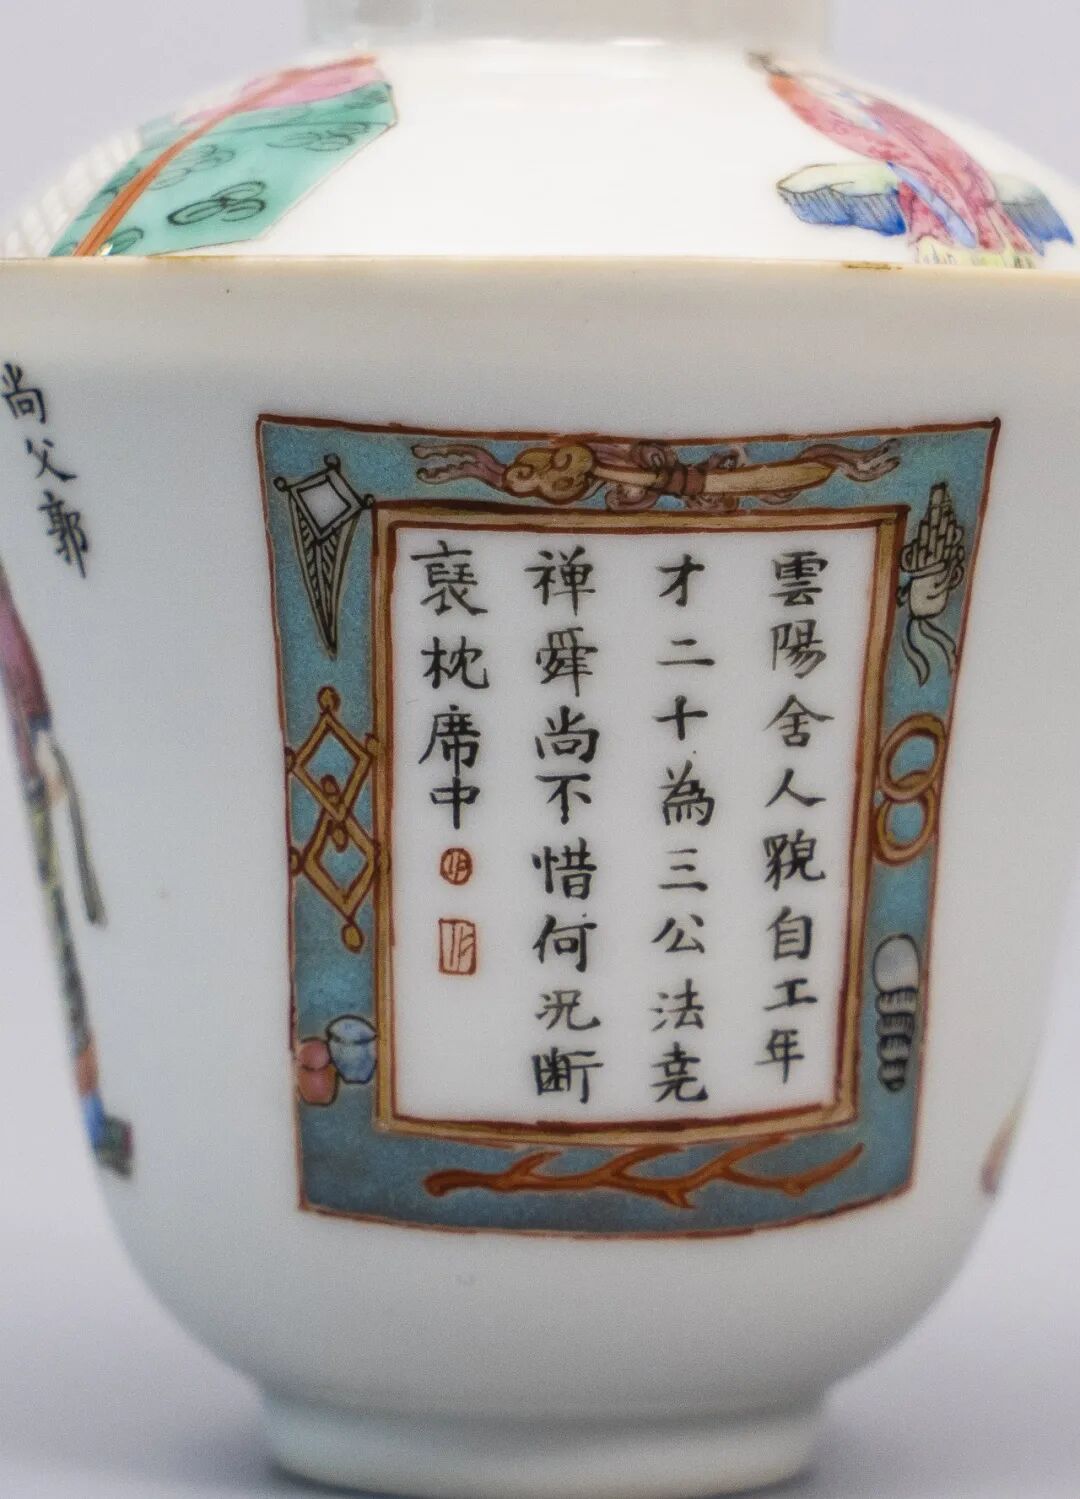 雲陽舍人貌自工年
才二十為三公法堯
禅舜尚不惜何况斷
褎枕席中
尚父郭